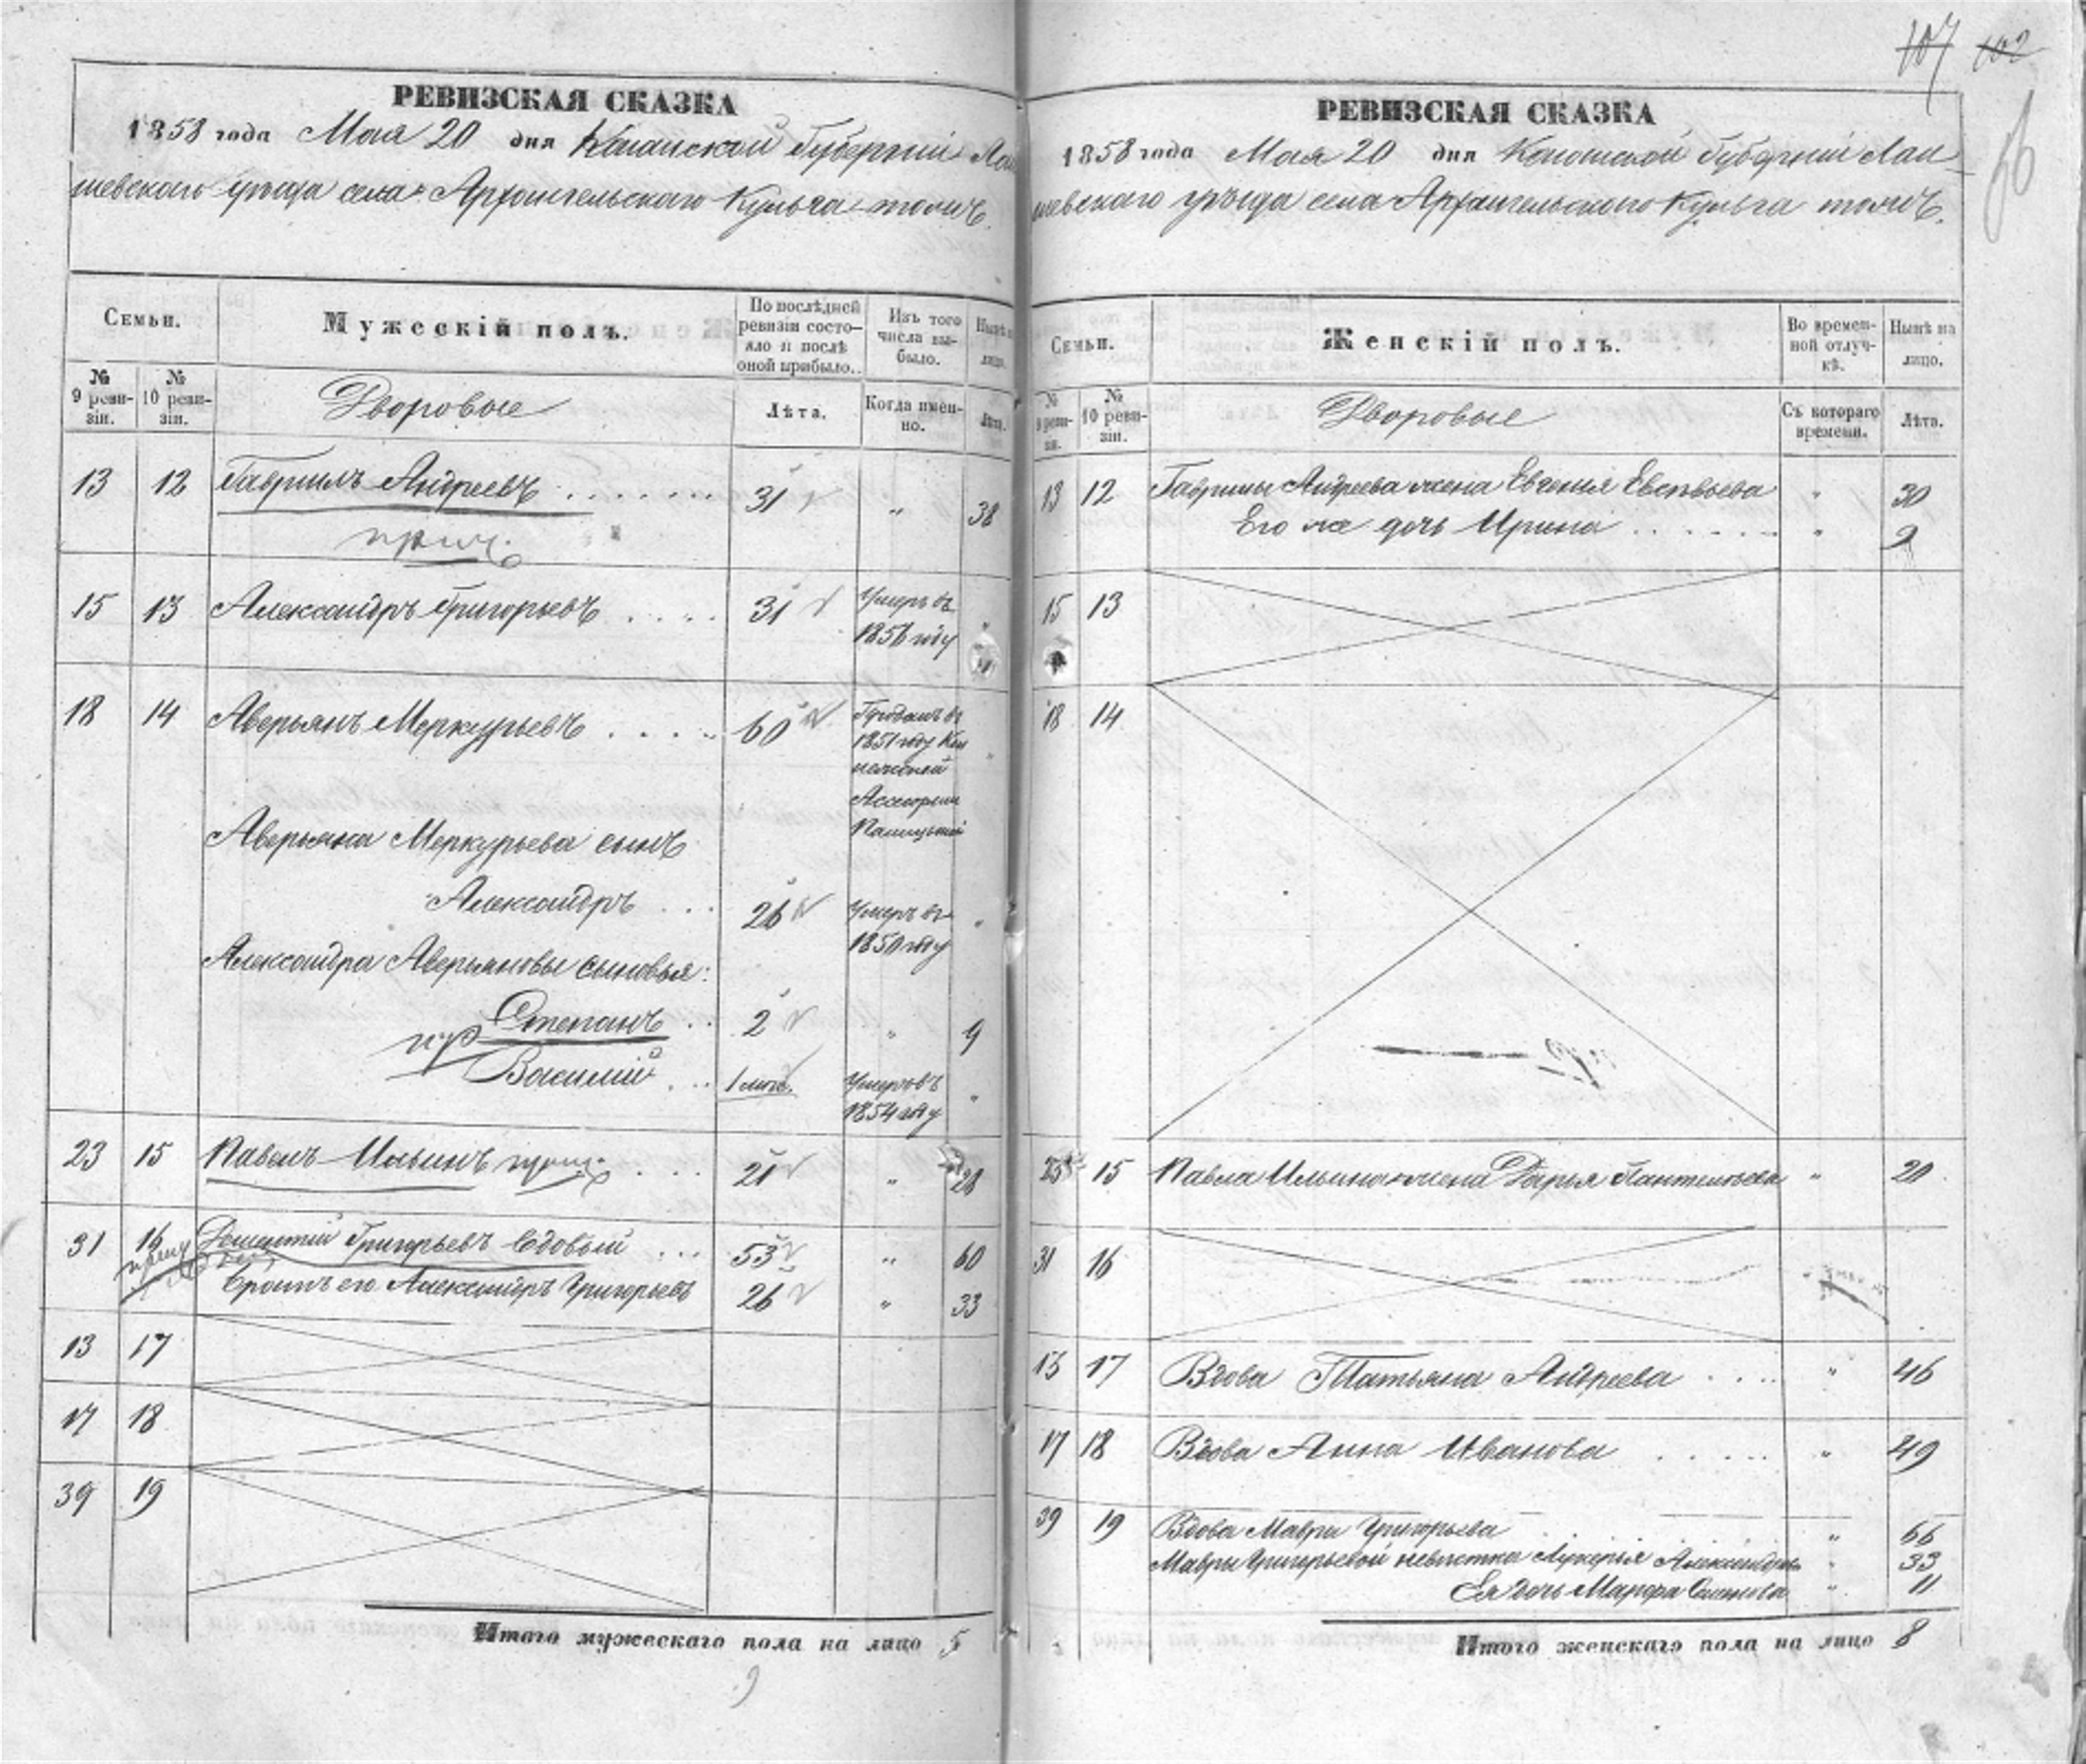 107 102
56
РЕВИЗСКАЯ СКАЗКА
1858 года Мая 20 дня Казанской Губерніи Лаи
шевскаго уѣзда села Архангельскаго Кульга тожъ.
Семьи.
Мужескій полъ.
По послѣдней ревизіи состо-
яло и послѣ оной прибыло.
Изъ того числа вы-
было.
Нынѣ на лицо.
№ 9 реви-
зіи.
№ 10 реви-
зіи.
Дворовые
Лѣта.
Когда имен-
но.
Лѣта.
13 12 Гаврилъ Андреевъ . . . . . . . 31 „ 38
15 13 Александръ Григорьевъ . . . . 31 Умеръ въ 1856 году „
18 14 Аверьянъ Меркурьевъ . . . . . 60 Проданъ въ 1851 году „
Аверьяна Меркурьева сынъ
Александръ . . . 26 Умеръ въ 1850 году „
Александра Аверьяновы сыновья:
Степанъ . . 2 „ 9
пр
Василій . . . 1 мѣс. Умеръ въ 1854 году „
23 15 Павелъ Ильинъ . . . 21 „ 28
31 16 Григорьевъ . . . 53 „ 60
Братъ его Александръ Григорьевъ 26 „ 33
13 17
17 18
39 19
Итого мужескаго пола на лицо 5
РЕВИЗСКАЯ СКАЗКА
1858 года Мая 20 дня Казанской Губерніи Лаи
шевскаго уѣзда села Архангельскаго Кульга тожъ.
Семьи.
Женскій полъ.
Во времен-
ной отлуч-
кѣ.
Нынѣ на лицо.
№ 9 реви-
зіи.
№ 10 реви-
зіи.
Дворовые
Съ котораго времени.
Лѣта.
13 12 Гаврилы Андреева жена Евгенія „ 30
Его же дочь Ирина . . . . . . „ 9
15 13
18 14
23 15 Павла Ильина жена Дарья Пантелѣева „ 20
31 16
13 17 Вдова Татьяна Андреева . . . . „ 46
17 18 Вдова Анна Иванова . . . . . „ 49
39 19 Вдова Мавра Григорьева „ 66
Мавры Григорьевой невѣстка Лукерья Александрова „ 33
Ея дочь Марфа Семенова „ 11
Итого женскаго пола на лицо 8